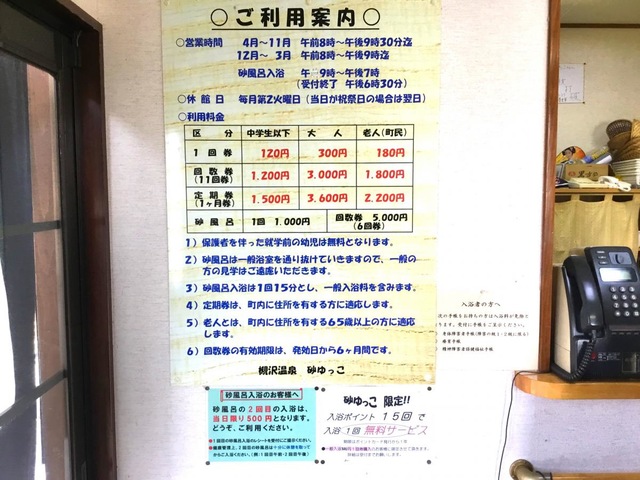 ○ご利用案内○
○営業時間 4月～11月 午前8時～午後9時30分迄
12月～ 3月 午前8時～午後9時迄
砂風呂入浴 午前9時～午後7時
(受付終了 午後6時30分)
○休館日 毎月第2火曜日(当日が祝祭日の場合は翌日)
○利用料金
区分 中学生以下 大人 老人(町民)
1回券 120円 300円 180円
回数券 (11回券) 1.200円 3.000円 1.800円
定期券 (1ヶ月券) 1.500円 3.600円 2.200円
砂風呂 1回 1.000円 回数券 5.000円 (6回券)
1)保護者を伴った就学前の幼児は無料となります。
2)砂風呂は一般浴室を通り抜けていきますので、一般の
方の見学はご遠慮いただきます。
3)砂風呂入浴は1回15分とし、一般入浴料を含みます。
4)定期券は、町内に住所を有する方に適応します。
5)老人とは、町内に住所を有する65歳以上の方に適応
します。
6)回数券の有効期限は、発効日から6ヶ月間です。
柳沢温泉 砂ゆっこ
砂風呂入浴のお客様へ
砂風呂の2回目の入浴は、
当日限り500円となります。
どうぞ、ご利用ください。
砂ゆっこ 限定!!
入浴ポイント 15回で
入浴1回 無料サービス
入浴者の方へ